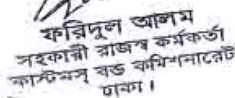 ফরিদুল আলম
সহকারী রাজস্ব কর্মকর্তা
কাস্টমস্ বন্ড কমিশনারেট
ঢাকা।